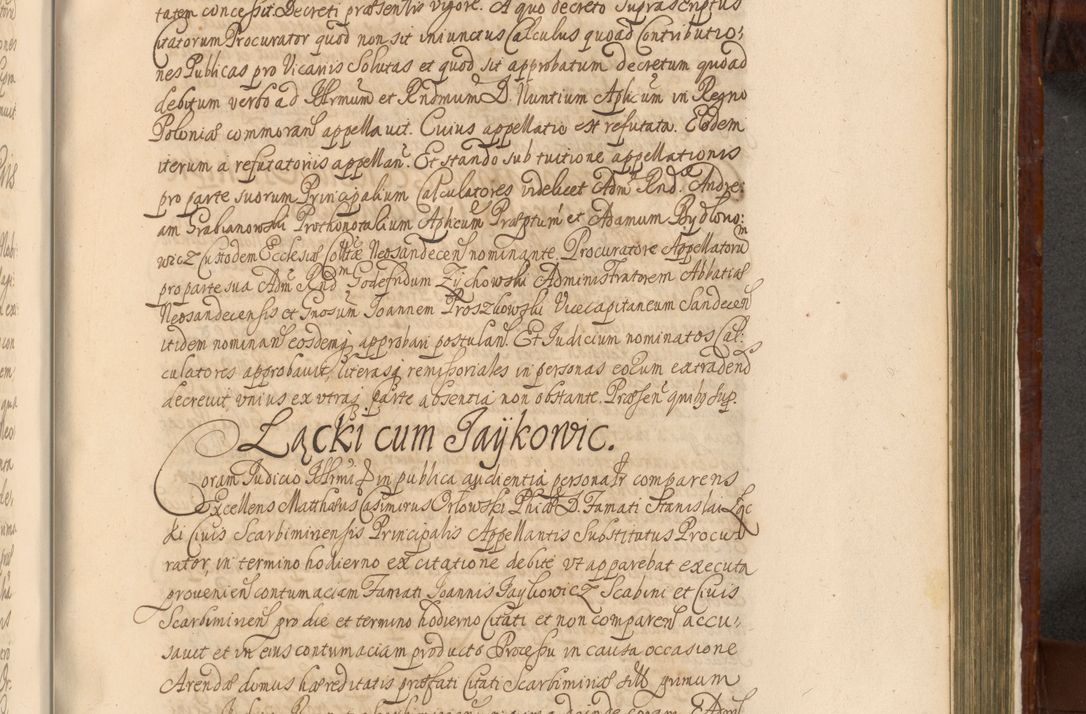 tatem concessit. Decreti præsentis vigore. A quo decreto suprascriptus
Citatorum Procurator quod non sit iniunctus Calculus quoad Contributio:
nes Publicas pro Vicariis Solutas et quod sit approbatum decretum quoad
debitum verbo ad Illrmum et Rndmum D. Nuntium Aplicum in Regno
Poloniæ commoran appellauit. Cuius appellatio est refutata. Eodem
iterum a refutatoriis appellan. Et stando sub tuitione appellationis
pro parte suorum Principalium Calculatores videlicet Adm Rnd. Andre:
am Grabianowski Prothonotalium Aplicum Præptum et Adamum Bydłono:
wicz Custodem Ecclesiæ Colltæ Neosandecen nominante. Procuratore Appellatorum
pro parte sua Adm Rndm Godefridum Zychowski Administratorem Abbatiæ
Neosandecensis et Gnosum Joannem Proszkowski Vicecapitaneum Sandecen
itidem nominan eosdemq approbari postulan. Et Judicium nominatos Cal:
culatores approbauit, literasq remissoriales in personas eorum extradend
decreuit, unius ex utraq parte absentia non obstante. Præsen quibs sup.
Łącki cum Jaykowic.
Coram Judicio Illrmi in publica audientia personalr comparens
Excellens Matthæus Casimirus Orłowski Phiæ D. Famati Stanislai Łąc
ki Ciuis Scarbimiriensis Principalis Appellantis Substitutus Procu
rator, in termino hodierno ex citatione debite vt apparebat executa
provenien contumaciam Famati Joannis Jaykowicz Scabini et Ciuis
Scarbimirien pro die et termino hodierno Citati et non comparen accu:
sauit et in eius contumaciam producto Processu in causa occasione
Arendæ domus hæreditatis præfati Citati Scarbimiriæ